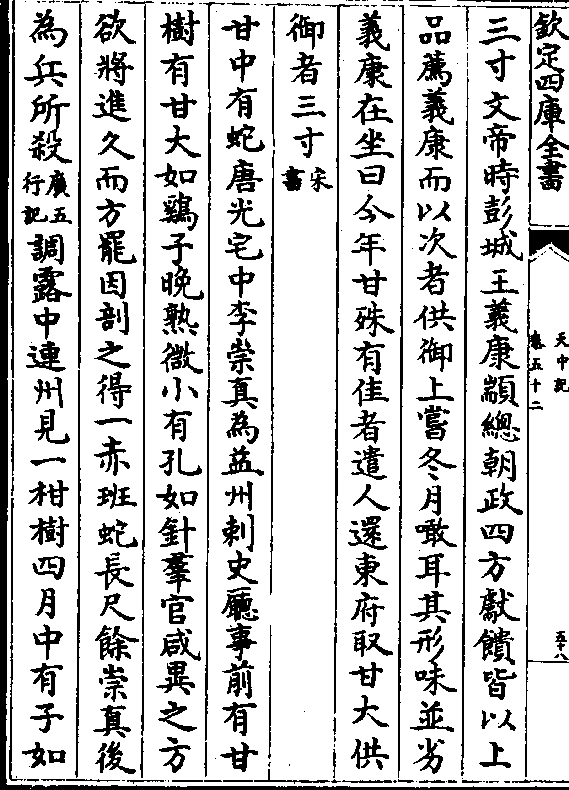 欽定四庫全書
天中記
卷五十二
五十八
三寸文帝時彭城王義康顓總朝政四方獻饋皆以上
品薦義康而以次者供御上嘗冬月噉耳其形味並劣
義康在坐曰今年甘殊有佳者遣人還東府取甘大供
御者三寸宋書
甘中有蛇唐光宅中李崇真為益州刺史廳事前有甘
樹有甘大如鷄子晚熟微小有孔如針羣官咸異之方
欲將進久而方罷因剖之得一赤班蛇長尺餘崇真後
為兵所殺廣五行記調露中連州見一柑樹四月中有子如